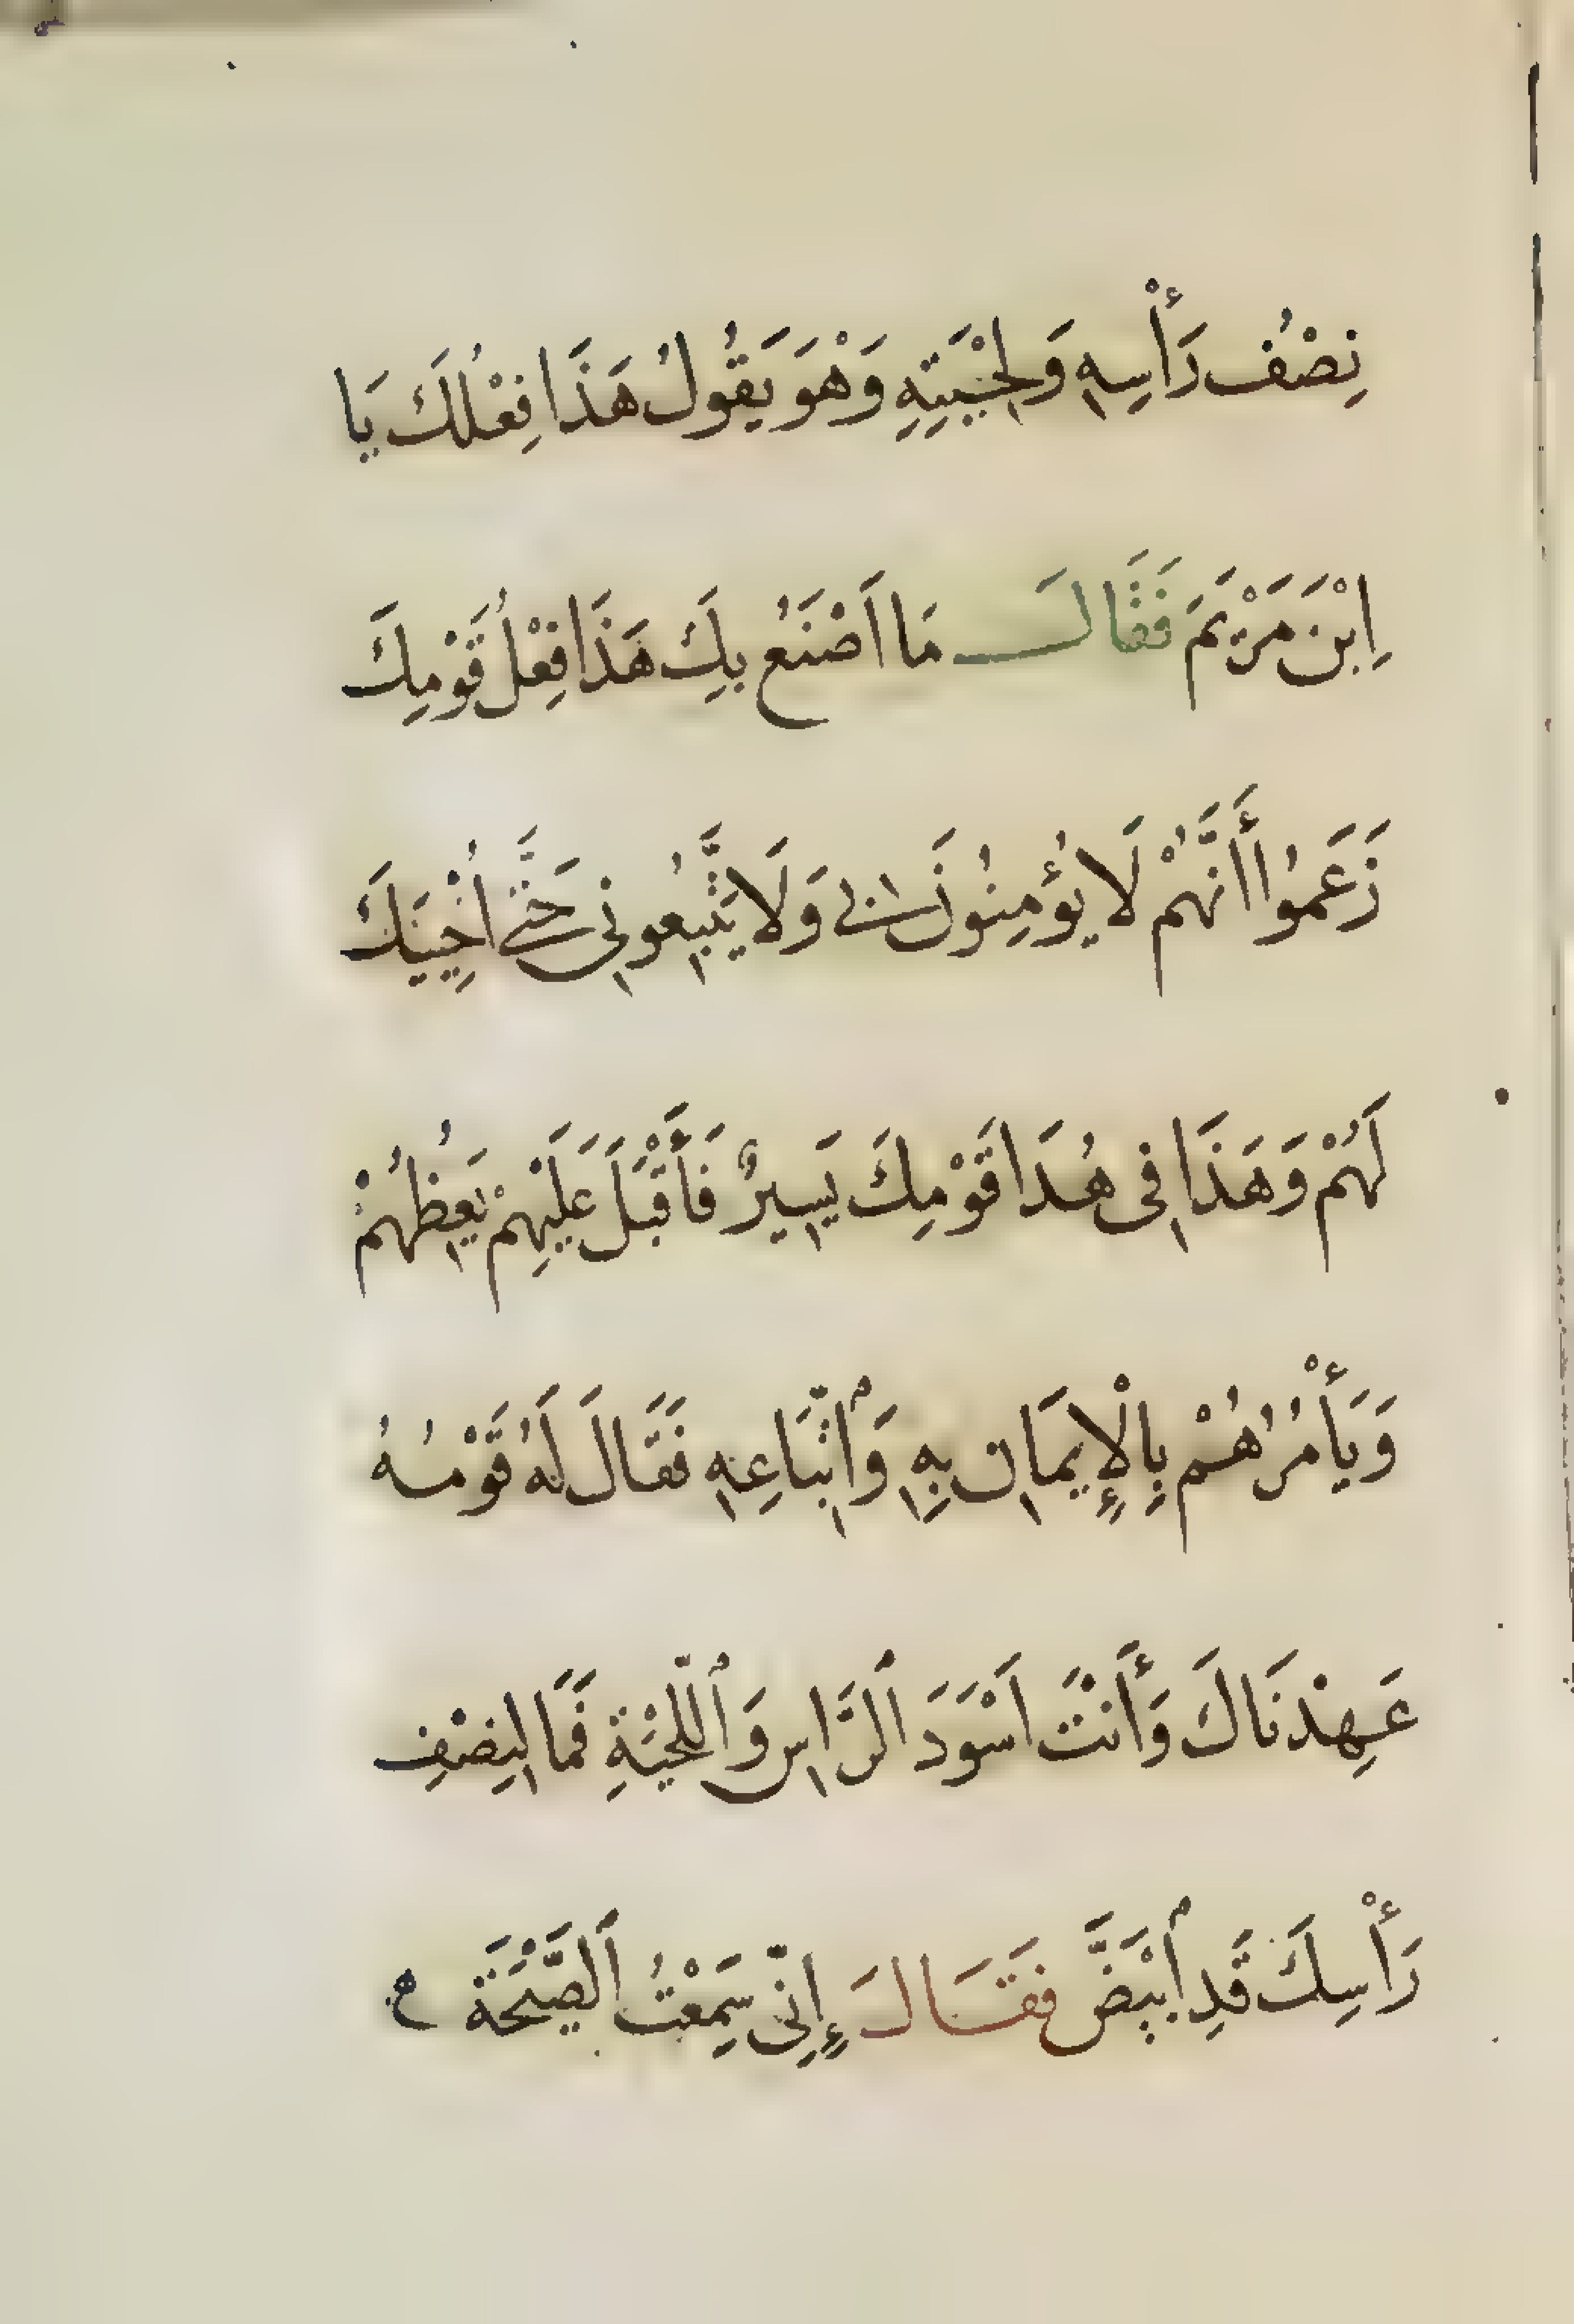 نِصْفُ رَأْسِهِ وَلِحْيَتِهِ وَهْوَ يَقُولُ هَذَا فِعْلُكَ يَا
اِبْنَ مَرْيَمَ فَقَالَ مَا اَصْنَعُ بِكَ هَذَا فِعْلُ قَوْمِكَ
زَعَمُوا أَنَّهُمْ لَا يُؤْمِنُونَ لِى وَلَا يَتَّبِعُونِى حَتَّى اُحْيِيَكَ
لَهُمْ وَهَذَا فِى هُدَا قَوْمِكَ يَسِيرٌ فَأَقْبَلَ عَلَيْهِمْ يَعِظُهُمْ
وَيَأْمُرُهُمْ بِالْإِيمَانِ بِهِ وَاتِّبَاعِهِ فَقَالَ لَهُ قَوْمُهُ
عَهِدْنَاكَ وَأَنْتَ اَسْوَدَ اَلرَّاسِ وَاُللِّحْيَةِ فَمَا لِنِصْفِ
رَأْسِكَ قَدِ اُبْيَضَّ فَقَالَ إِنِّى سَمِعْتُ اَلصَّيْحَةَ